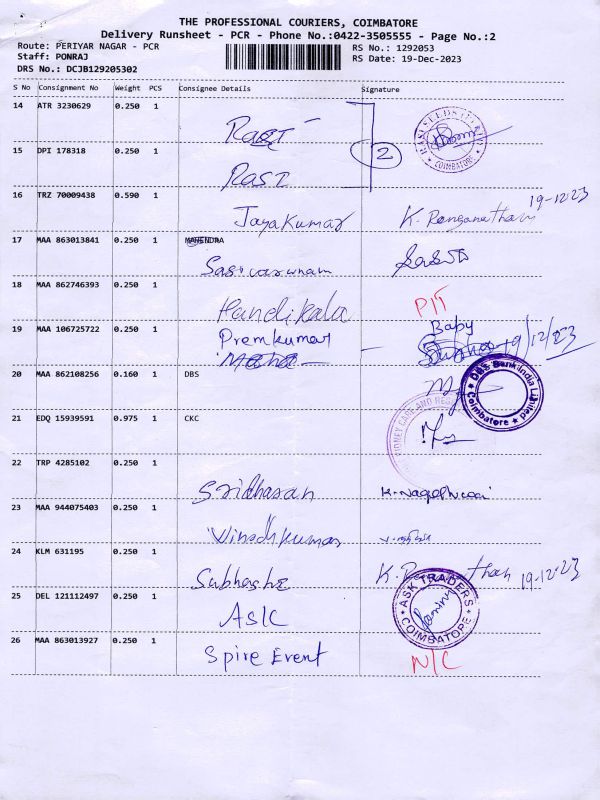 THE PROFESSIONAL COURIERS, COIMBATORE
Delivery Runsheet - PCR - Phone No.:0422-3505555 - Page No.:2
Route: PERIYAR NAGAR - PCR RS No.: 1292053
Staff: PONRAJ RS Date: 19-Dec-2023
DRS No.: DCJB129205302
S No Consignment No Weight PCS Consignee Details Signature
14 ATR 3230629 0.250 1
Rasi
2
COIMBATORE
15 DPI 178318 0.250 1
RASI
16 TRZ 70009438 0.590 1
19-12-23
Jayakumar K. Renganatham
17 MAA 863013841 0.250 1 MAHENDRA
Sasivarunam
18 MAA 862746393 0.250 1
Handikala P/T
19 MAA 106725722 0.250 1 Premkumar Baby
Maha 19/12/23
20 MAA 862108256 0.160 1 DBS
DBS Bank India Limited
Coimbatore
21 EDQ 15939591 0.975 1 CKC
22 TRP 4285102 0.250 1
Sridharan
23 MAA 944075403 0.250 1
Vinodhkumar
24 KLM 631195 0.250 1
Subhashe 19-12-23
25 DEL 121112497 0.250 1
ASK
ASK TRADERS
COIMBATORE
26 MAA 863013927 0.250 1
Spire Event N/C